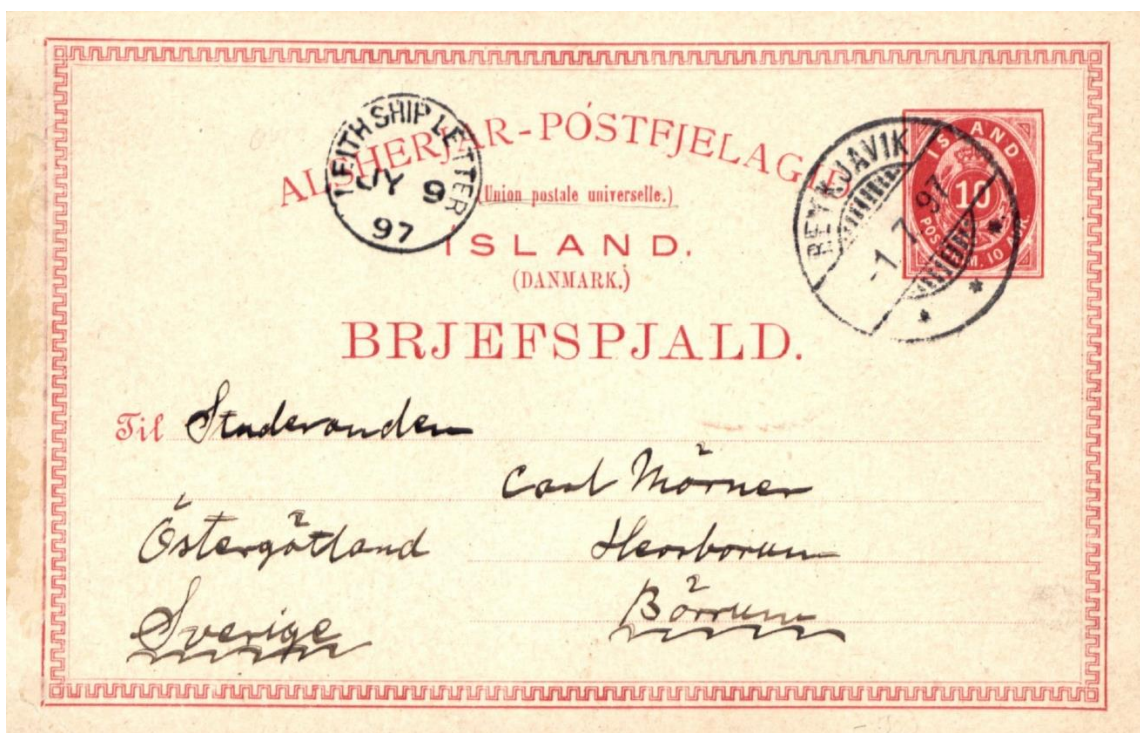 ALSHERJAR-PÓSTFJELAGIÐ
(Union postale universelle.)
ÍSLAND.
(DANMARK.)
BRJEFSPJALD.
LEITH SHIP LETTER
JY 9
97
REYKJAVIK
-1.7.97
ÍSLAND
10
POST FRIM. 10 AUR.
Til Studeranden
Carl Mörner
Östergötland
Börrum
Sverige